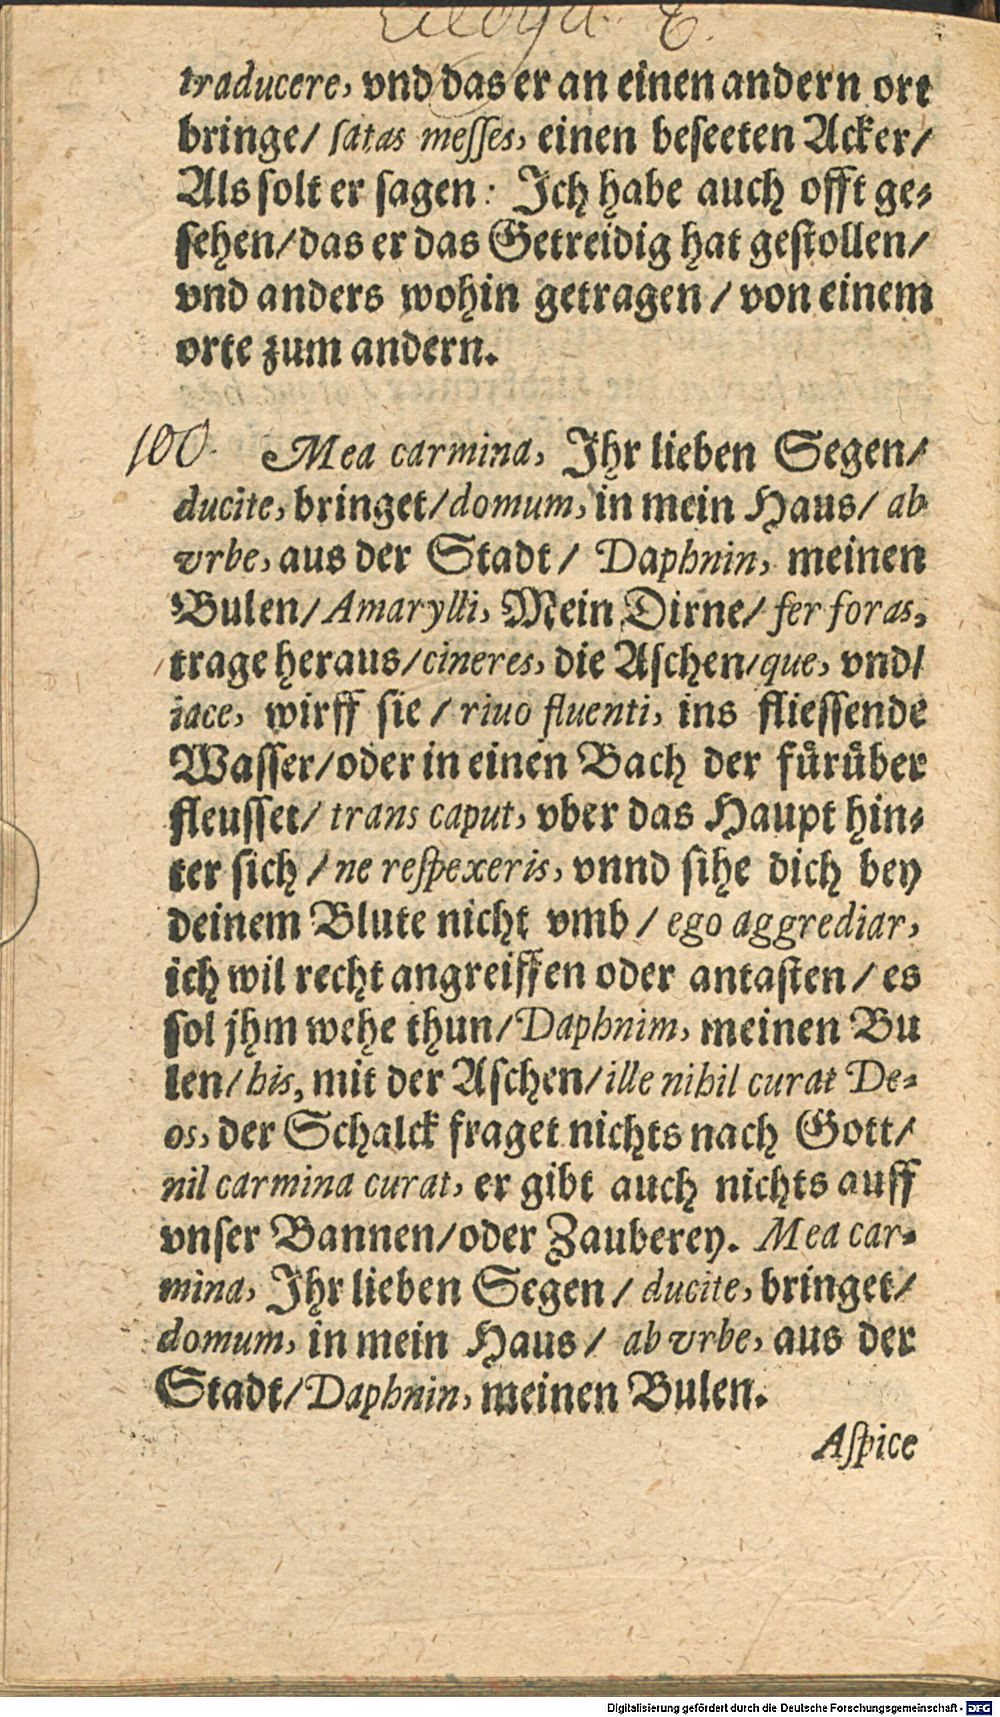 Ecloga. 8.
traducere, vnd das er an einen andern ort
bringe/ ſatas meſſes, einen beſeeten Acker/
Als ſolt er ſagen: Ich habe auch offt ge⸗
ſehen/das er das Getreidig hat geſtollen/
vnd anders wohin getragen / von einem
orte zum andern.
100. Mea carmina, Ihr lieben Segen/
ducite, bringet/domum, in mein Haus/ ab
vrbe, aus der Stadt / Daphnin, meinen
Bulen/ Amarylli, Mein Dirne/ fer foras,
trage heraus/cineres, die Aſchen/que, vnd/
iace, wirff ſie / riuo fluenti, ins flieſſende
Waſſer/oder in einen Bach der fuͤruͤber
fleuſſet/ trans caput, vber das Haupt hin⸗
ter ſich / ne reſpexeris, vnnd ſihe dich bey
deinem Blute nicht vmb / ego aggrediar,
ich wil recht angreiffen oder antaſten / es
ſol jhm wehe thun/Daphnim, meinen Bu
len/his, mit der Aſchen/ille nihil curat De⸗
os, der Schalck fraget nichts nach Gott/
nil carmina curat, er gibt auch nichts auff
vnſer Bannen/oder Zauberey. Mea car⸗
mina, Ihr lieben Segen / ducite, bringet/
domum, in mein Haus / ab vrbe, aus der
Stadt/Daphnin, meinen Bulen.
Aſpice
Digitalisierung gefördert durch die Deutsche Forschungsgemeinschaft - DFG